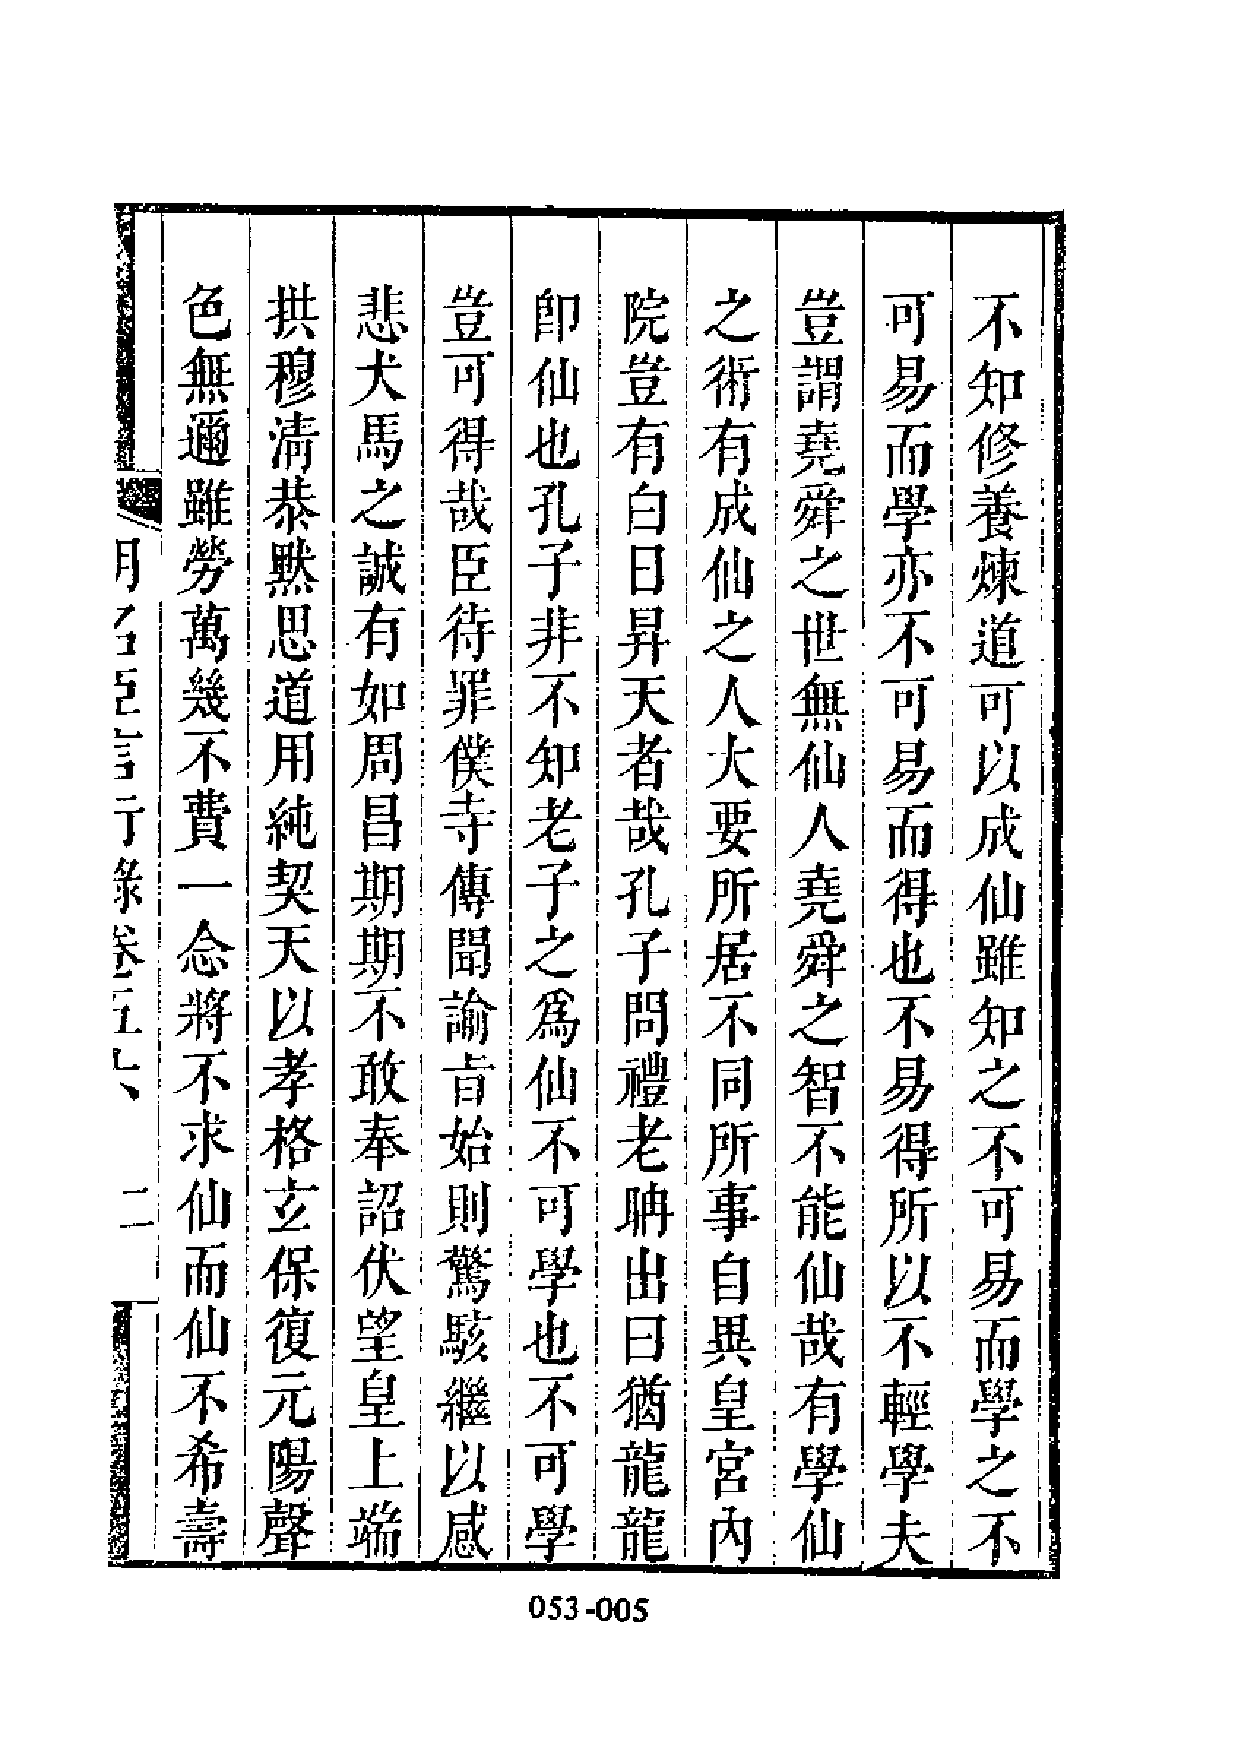 不知修養煉道可以成仙雖知之不可易而學之不
可易而學亦不可易而得也不易得所以不輕學夫
豈謂堯舜之世無仙人堯舜之智不能仙哉有學仙
之術有成仙之人大要所居不同所事自異皇宮內
院豈有白日昇天者哉孔子問禮老聃出曰猶龍龍
卽仙也孔子非不知老子之爲仙不可學也不可學
豈可得哉臣待罪僕寺傳聞諭旨始則驚駭繼以感
悲犬馬之誠有如周昌期期不敢奉詔伏望皇上端
拱穆淸恭默思道用純契天以孝格玄保復元陽聲
色無邇雖勞萬幾不費一念將不求仙而仙不希壽
明名臣言行錄卷五六 二
053-005